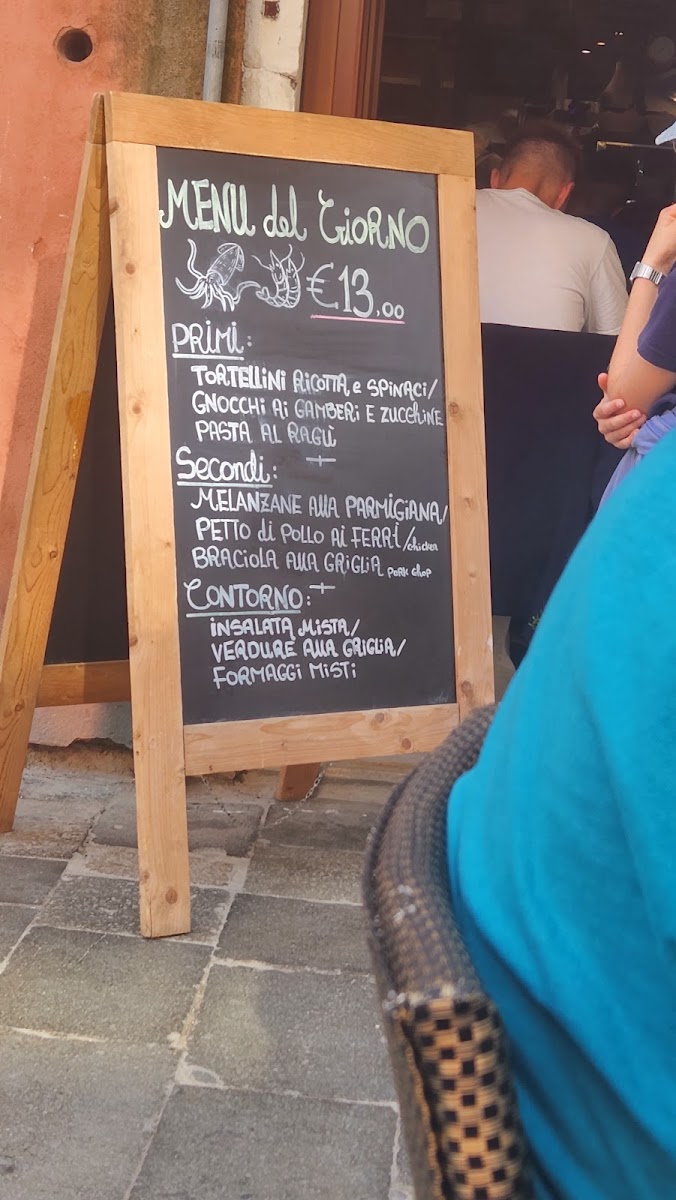 MENU del GiORNO
€13,00
PRIMI:
TORTELLINI RICOTTA e SPINACI/
GNOCCHI Ai GAMBERI E ZUCCHINE
PASTA AL RAGÙ
Secondi:
MELANZANE AllA PARMIGIANA/
PETTO di POLLO Ai FERRI/chicken
BRACIOLA AllA GRIGLIA PORK CHOP
CONTORNO:
INSALATA MISTA/
VERDURE AllA GRIGLIA/
FORMAGGI MISTI